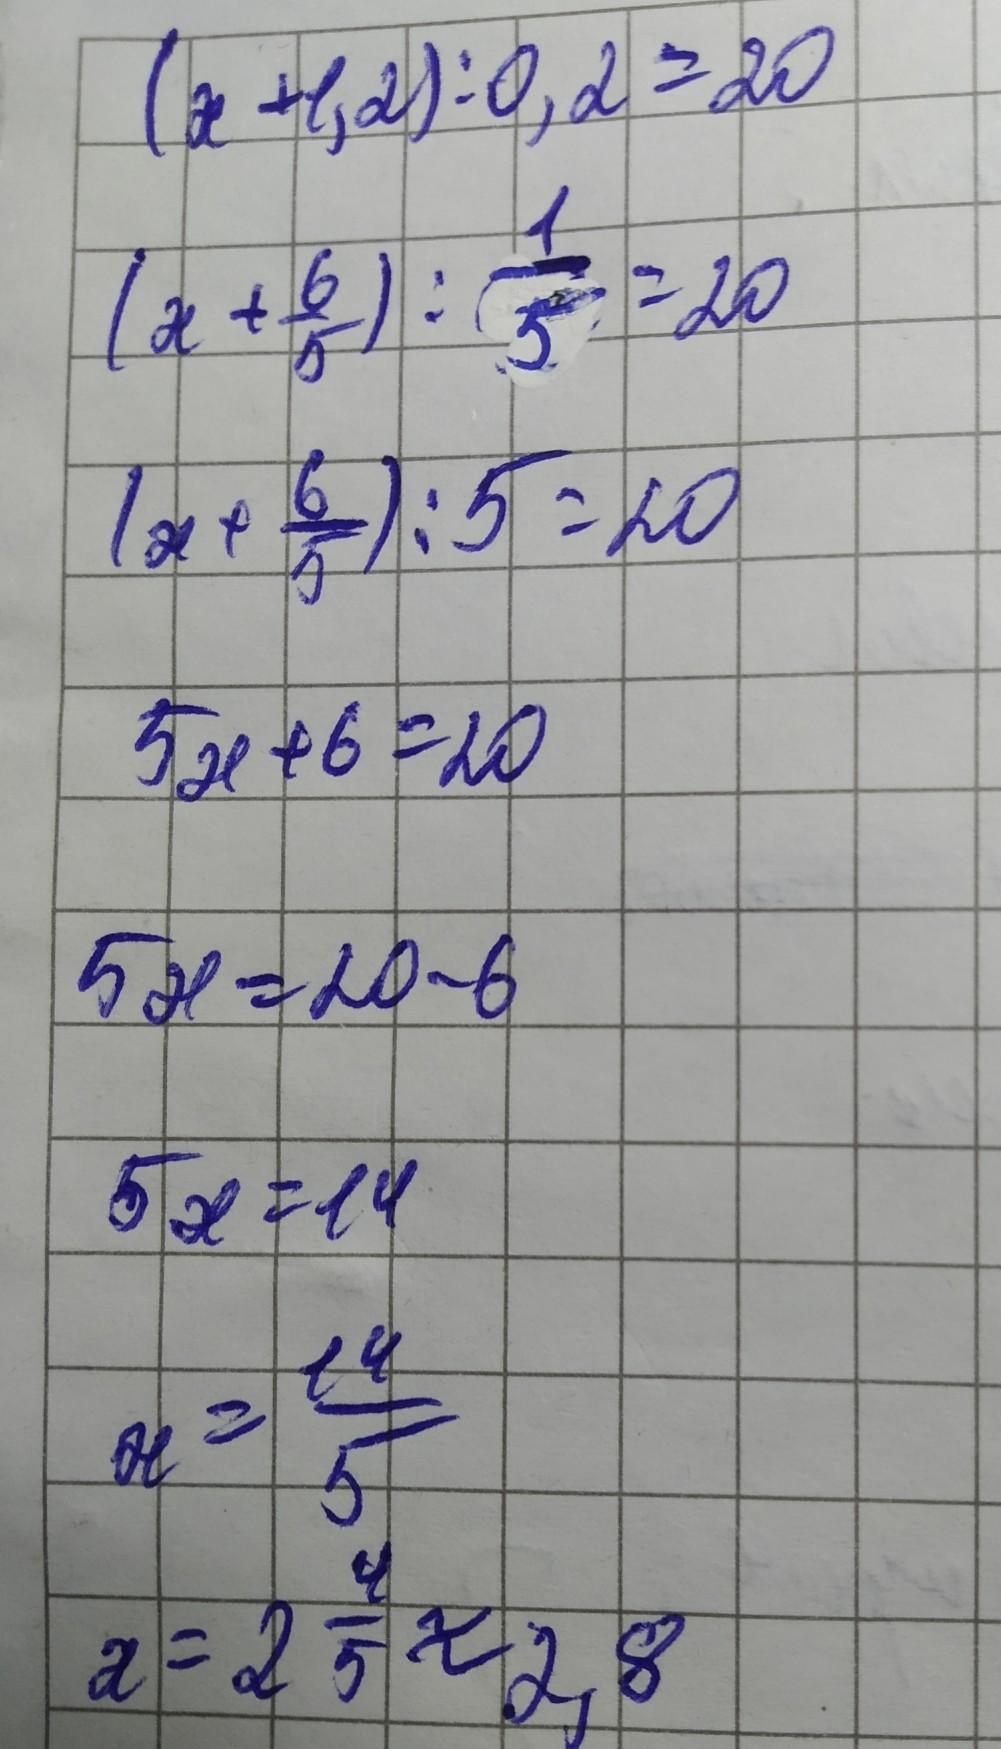 (x+1,2):0,2=20
(x+6/5):1/5=20
(x+6/5):5=20
5x+6=20
5x=20-6
5x=14
x=14/5
x=2 4/5≈2,8